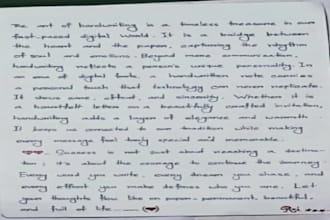 The art of handwriting is a timeless treasure in our
fast-paced digital world. It is a bridge between
the heart and the paper, capturing the rhythm
of soul and emotions. Beyond mere communication,
handwriting reflects a person's unique personality. In
an era of digital fonts, a handwritten note carries
a personal touch that technology can never replicate.
It shows care, effort, and sincerity. Whether it is
a heartfelt letter or a beautifully crafted invitation,
handwriting adds a layer of elegance and warmth.
It keeps us connected to our tradition while making
every message feel truly special and memorable.
Success is not about reaching a destina-
tion; it's about the courage to continue the journey.
Every word you write, every dream you chase, and
every effort you make defines who you are. Let
your thoughts flow like on paper - permanent, beautiful,
and full of life